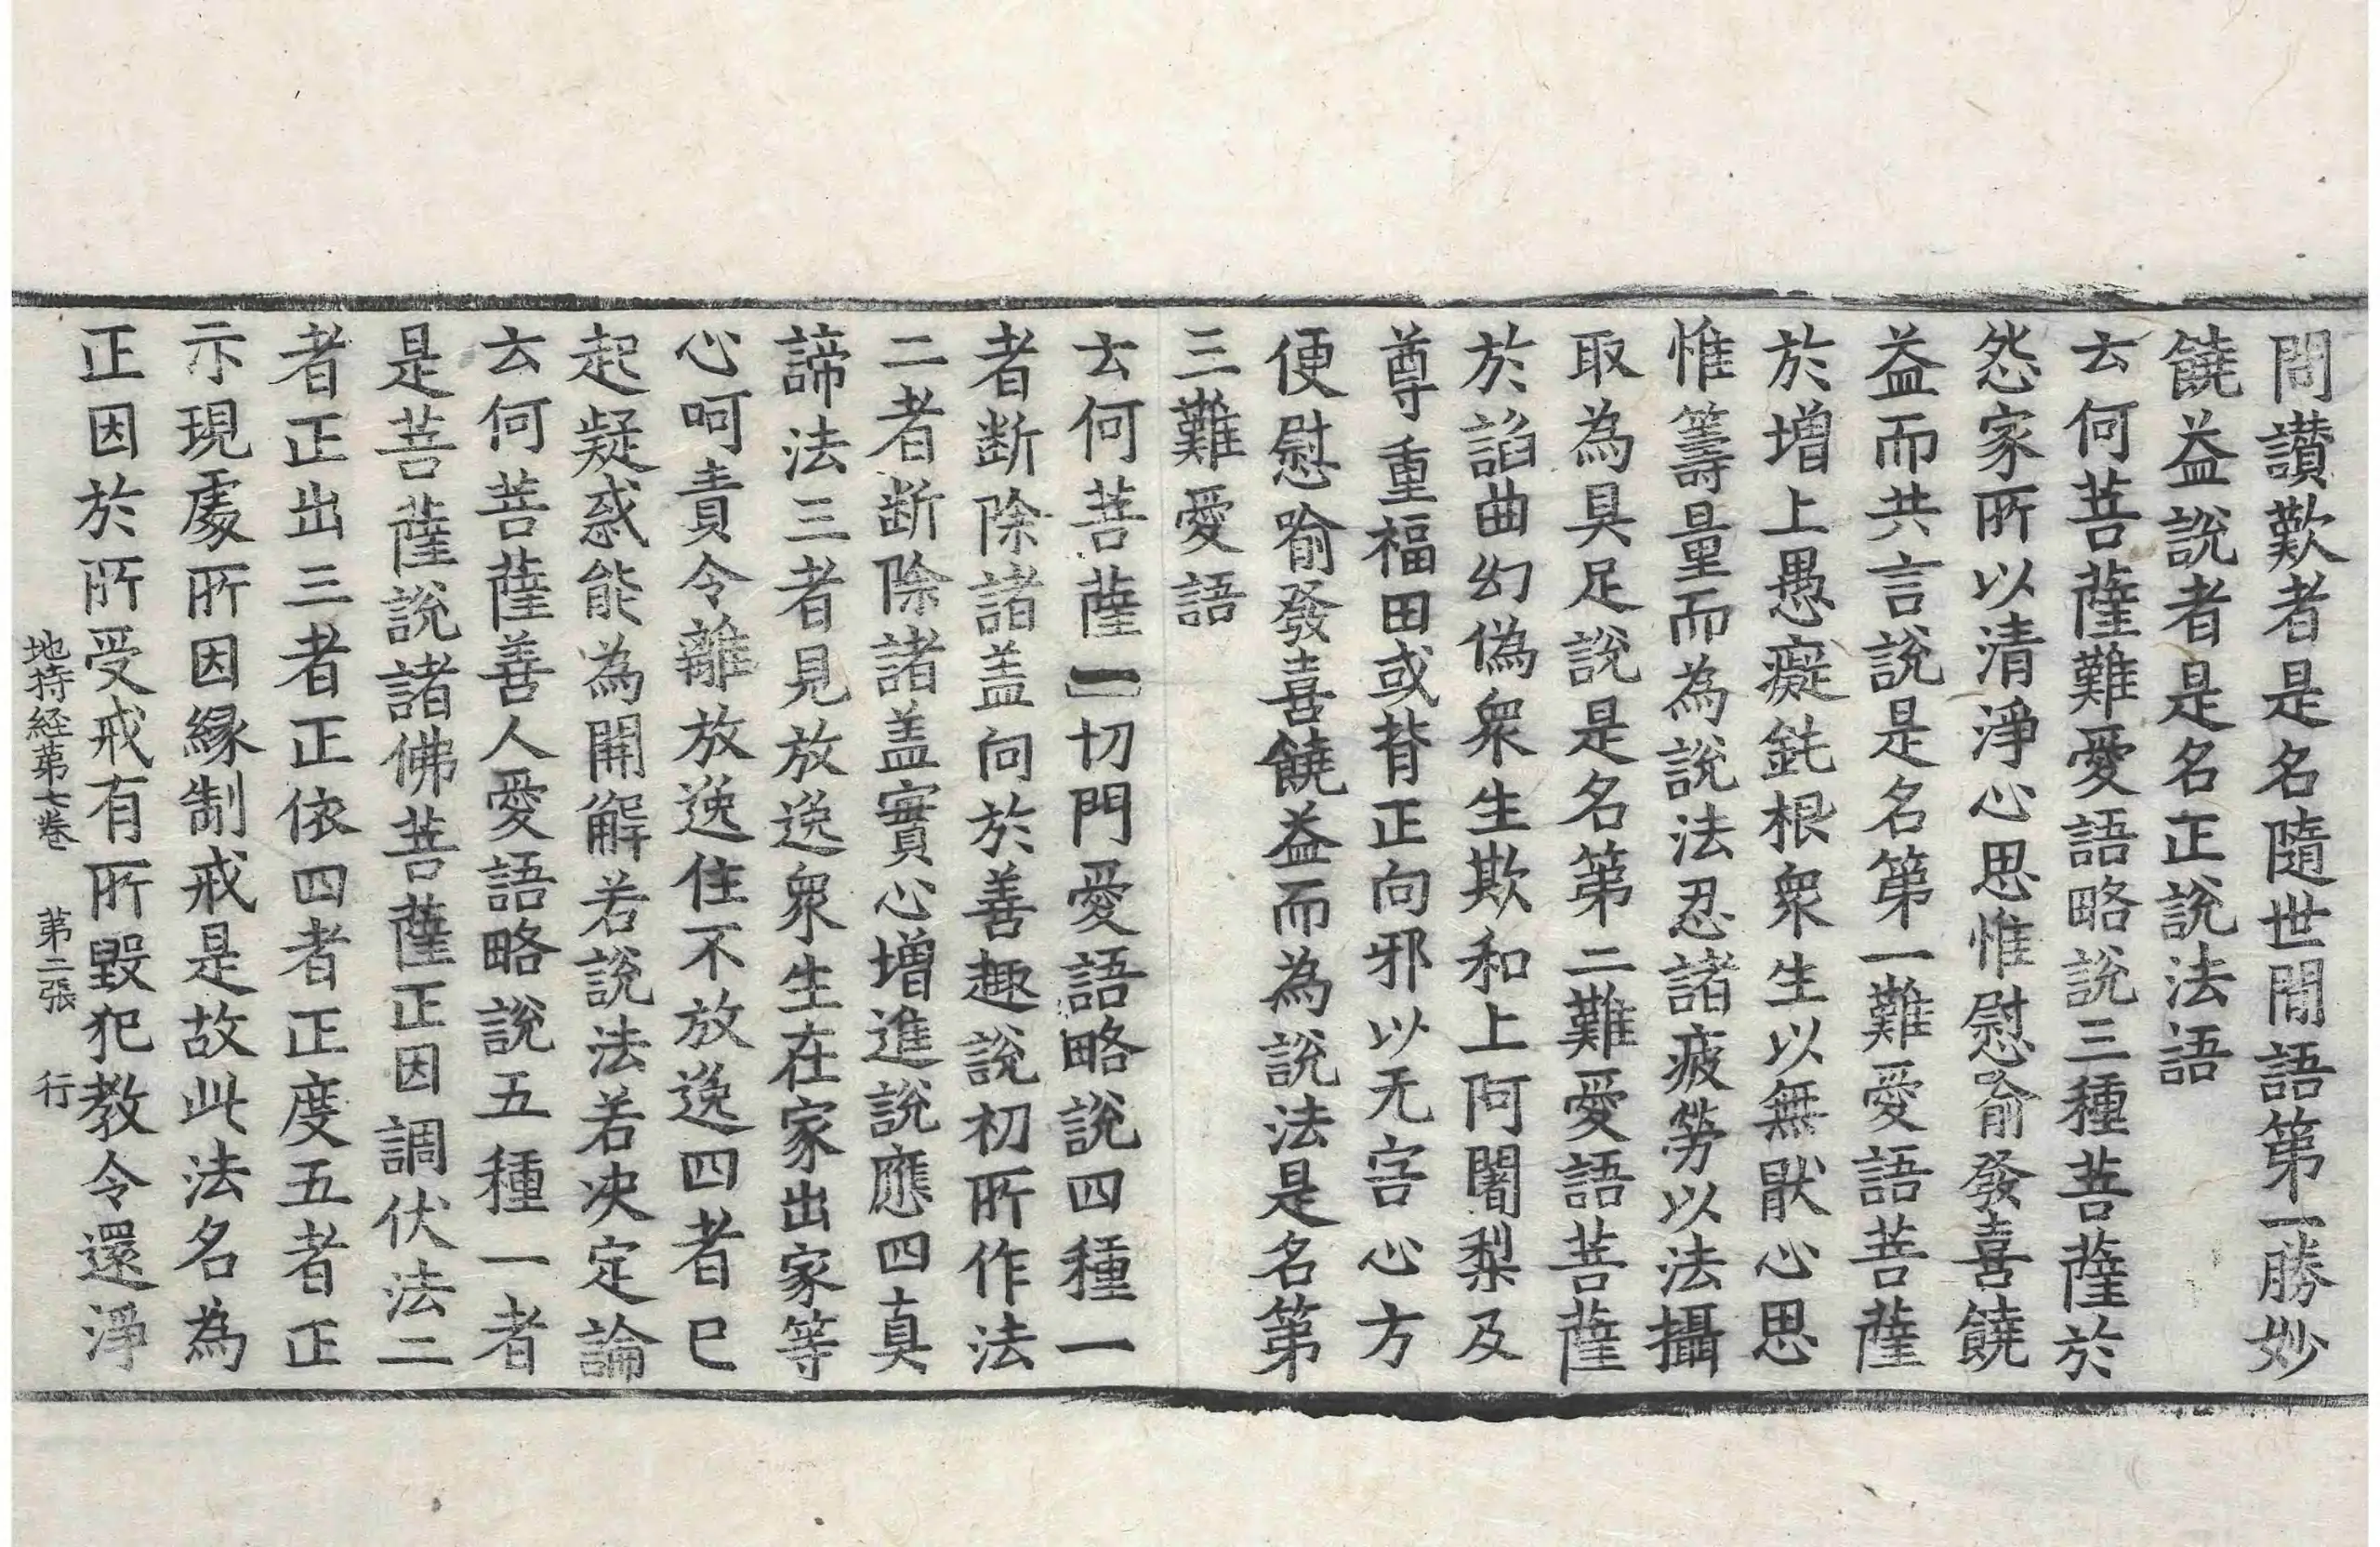 問讃歎者是名隨世間語第一勝妙
饒益說者是名正說法語
云何菩薩難愛語略說三種菩薩於
怨家所以清淨心思惟慰喻發喜饒
益而共言說是名第一難愛語菩薩
於增上愚癡鈍根衆生以無猒心思
惟籌量而為說法忍諸疲勞以法攝
取為具足說是名第二難愛語菩薩
於諂曲幻偽衆生欺和上阿闍梨及
尊重福田或背正向邪以无害心方
便慰喻發喜饒益而為說法是名第
三難愛語
云何菩薩一切門愛語略說四種一
者断除諸盖向於善趣說初所作法
二者断除諸盖實心增進說應四真
諦法三者見放逸衆生在家出家等
心呵責令離放逸住不放逸四者已
起疑惑能為開解若說法若决定論
云何菩薩善人愛語略說五種一者
是菩薩說諸佛菩薩正因調伏法二
者正出三者正依四者正度五者正
示現處所因緣制戒是故此法名為
正因於所受戒有所毀犯教令還淨
地持経第七卷　第二張　行